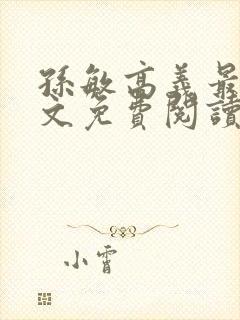 孫敏高義最
文免費閱讀
小霄